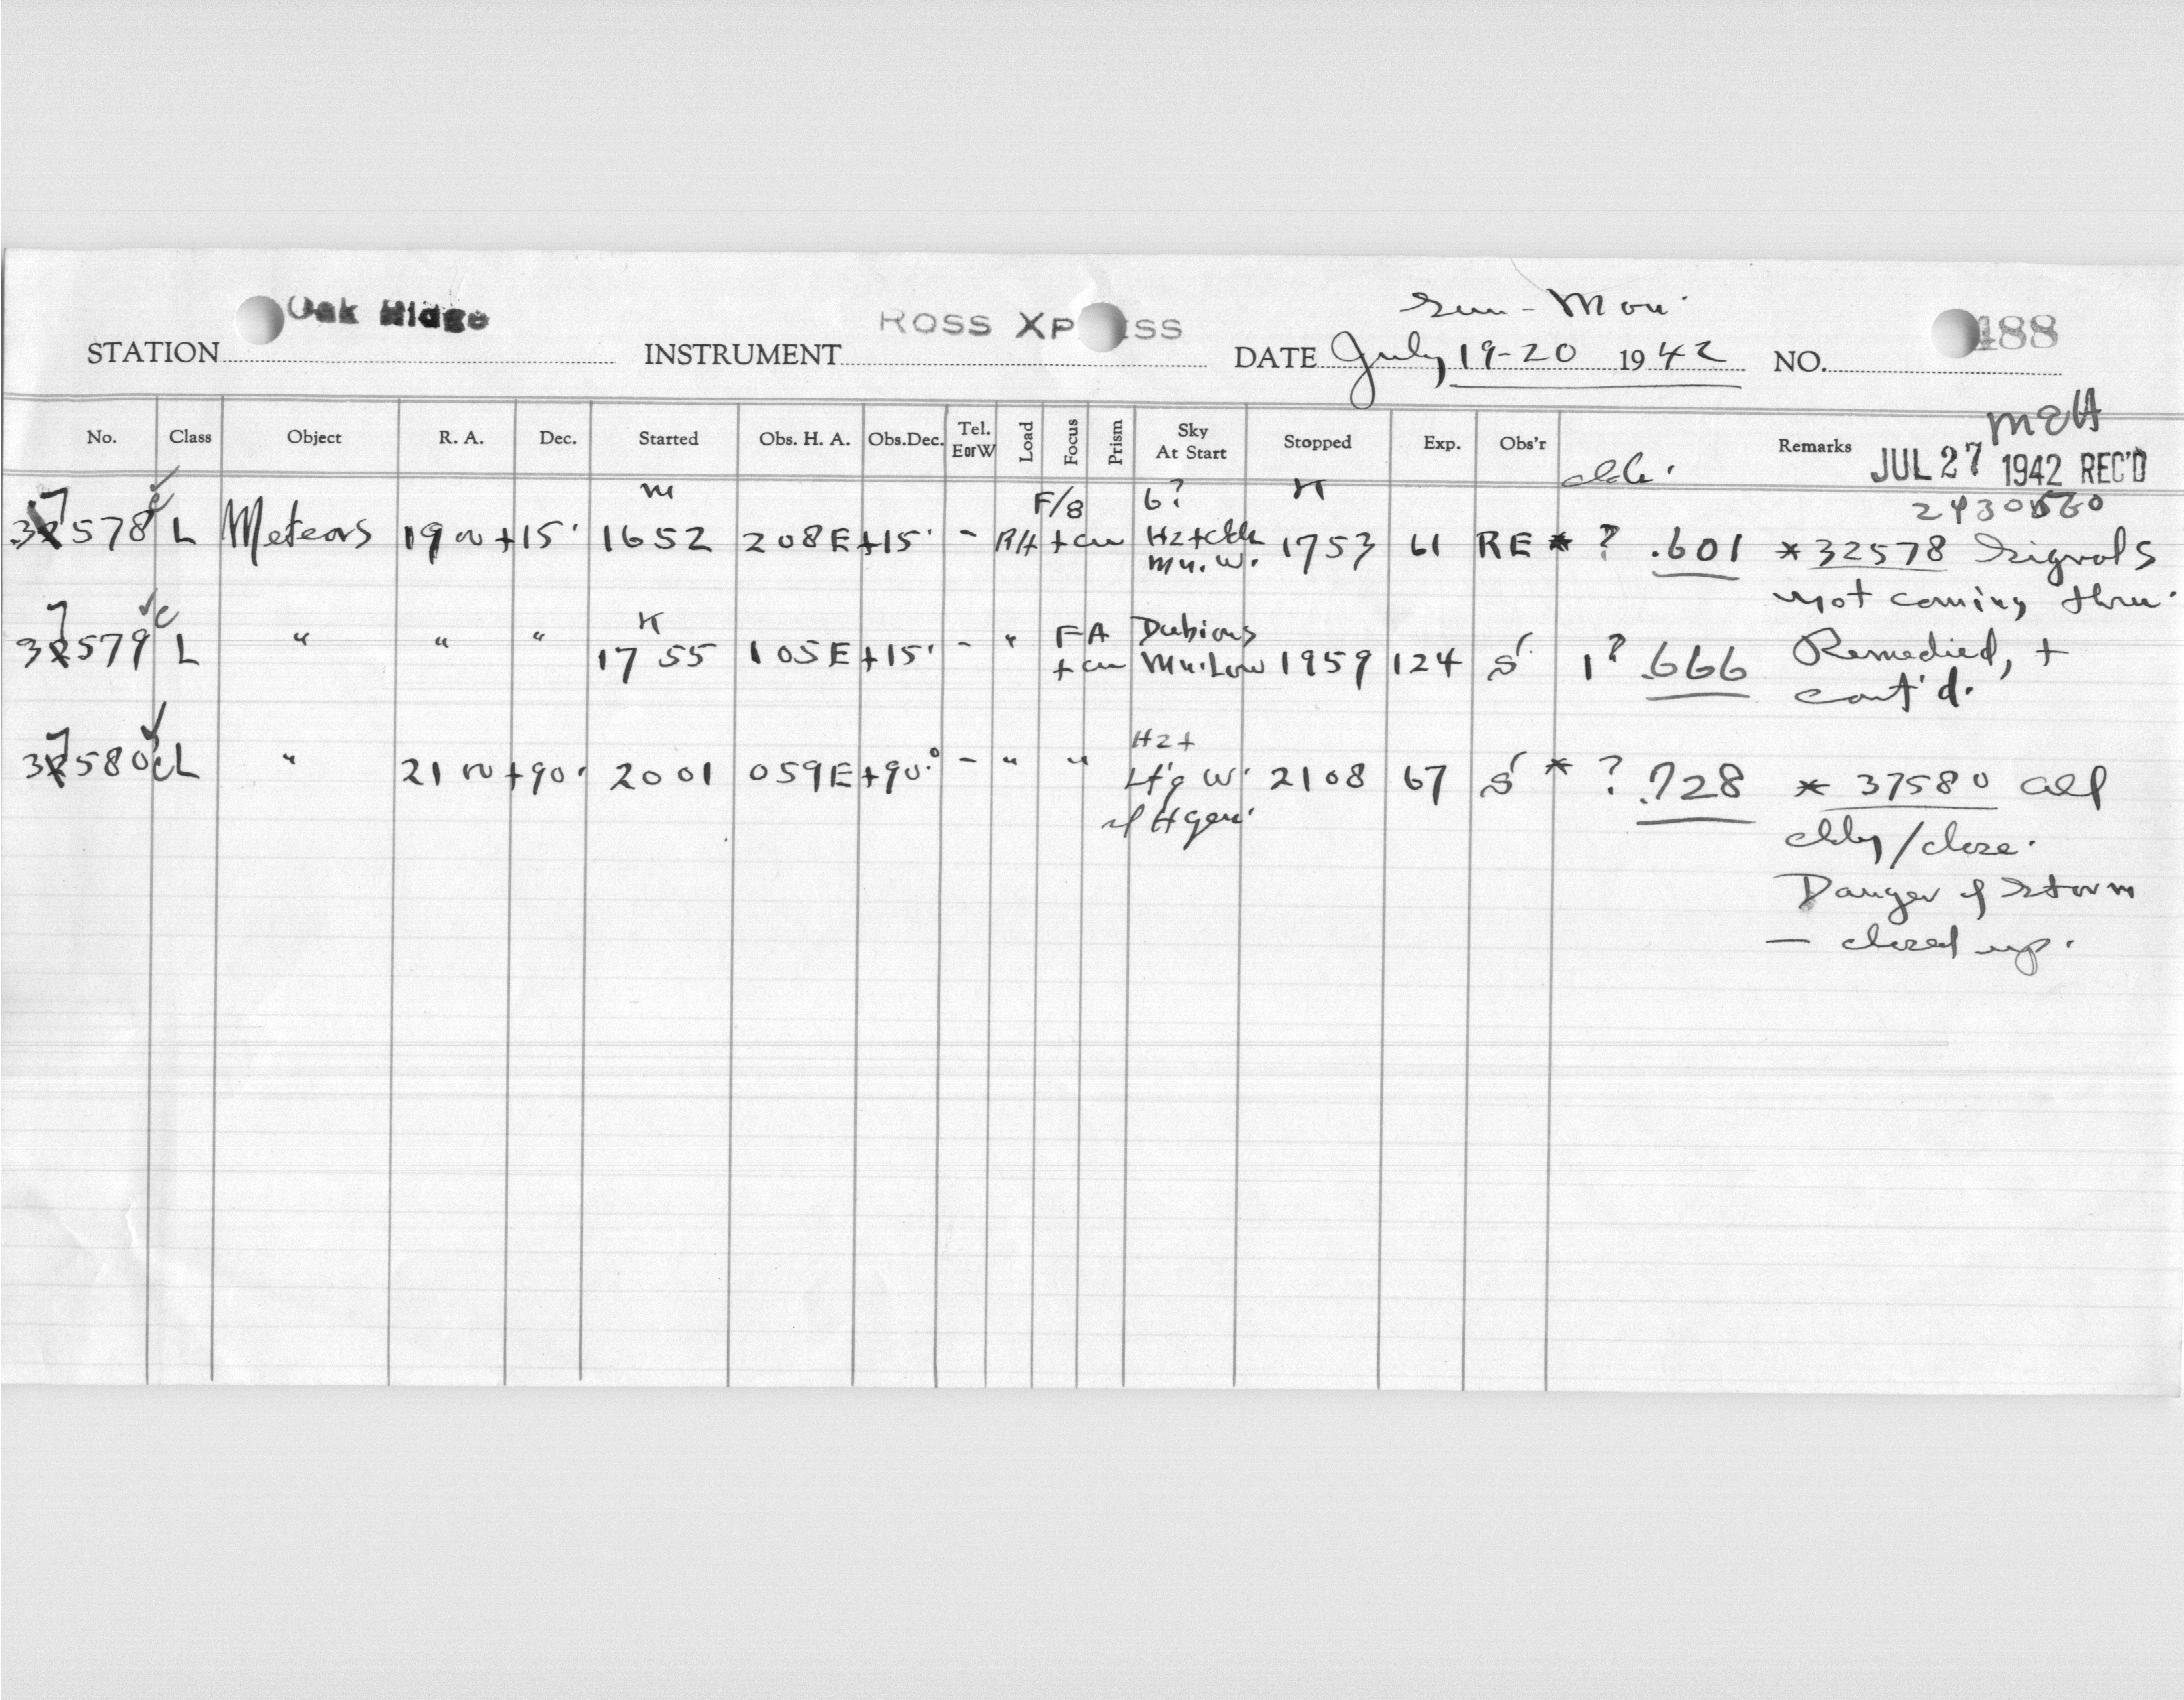 Oak Ridge ROSS XP ESS Sun - Mon. 488
STATION INSTRUMENT DATE July 19-20 1942 NO.
No. Class Object R. A. Dec. Started Obs. H. A. Obs.Dec. Tel. E or W Load Focus Prism Sky At Start Stopped Exp. Obs'r Remarks
JUL 27 1942 REC'D
2430560
F/8 6?
37578 L Meteors 19 +15° 1652 208E +15° - RH Hz + 1753 61 RE * ? .601 * 32578 Signals
Mn. W. not coming thru.
37579 L " " " 1755 105E +15° - " FA Dubious Mn. Low 1959 124 S 1? .666 Remedied, +
cont'd.
37580 L " 21 +90° 2001 059E +90° - " " Hz + 2108 67 S * ? .728 * 37580 all
Lt'g W. cldy / close.
Danger of storm
— closed up.